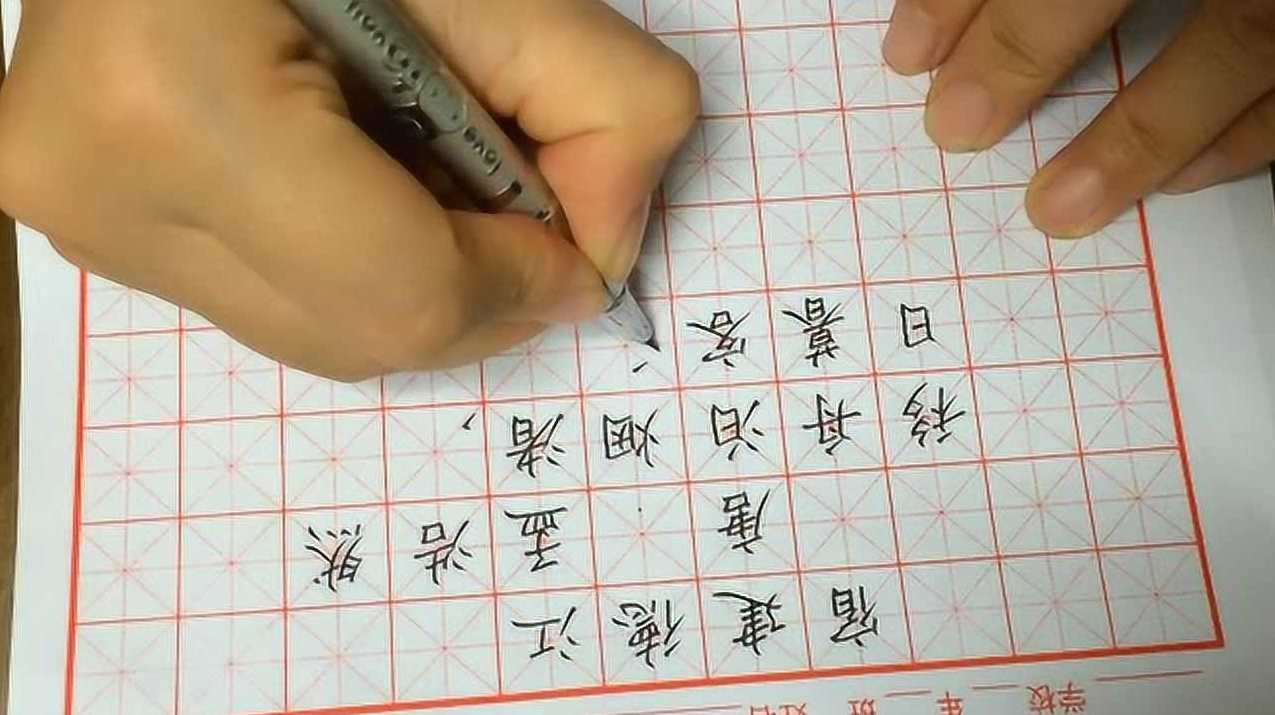 学校 年 班 姓名
宿建德江
唐·孟浩然
移舟泊烟渚，
日暮客
love